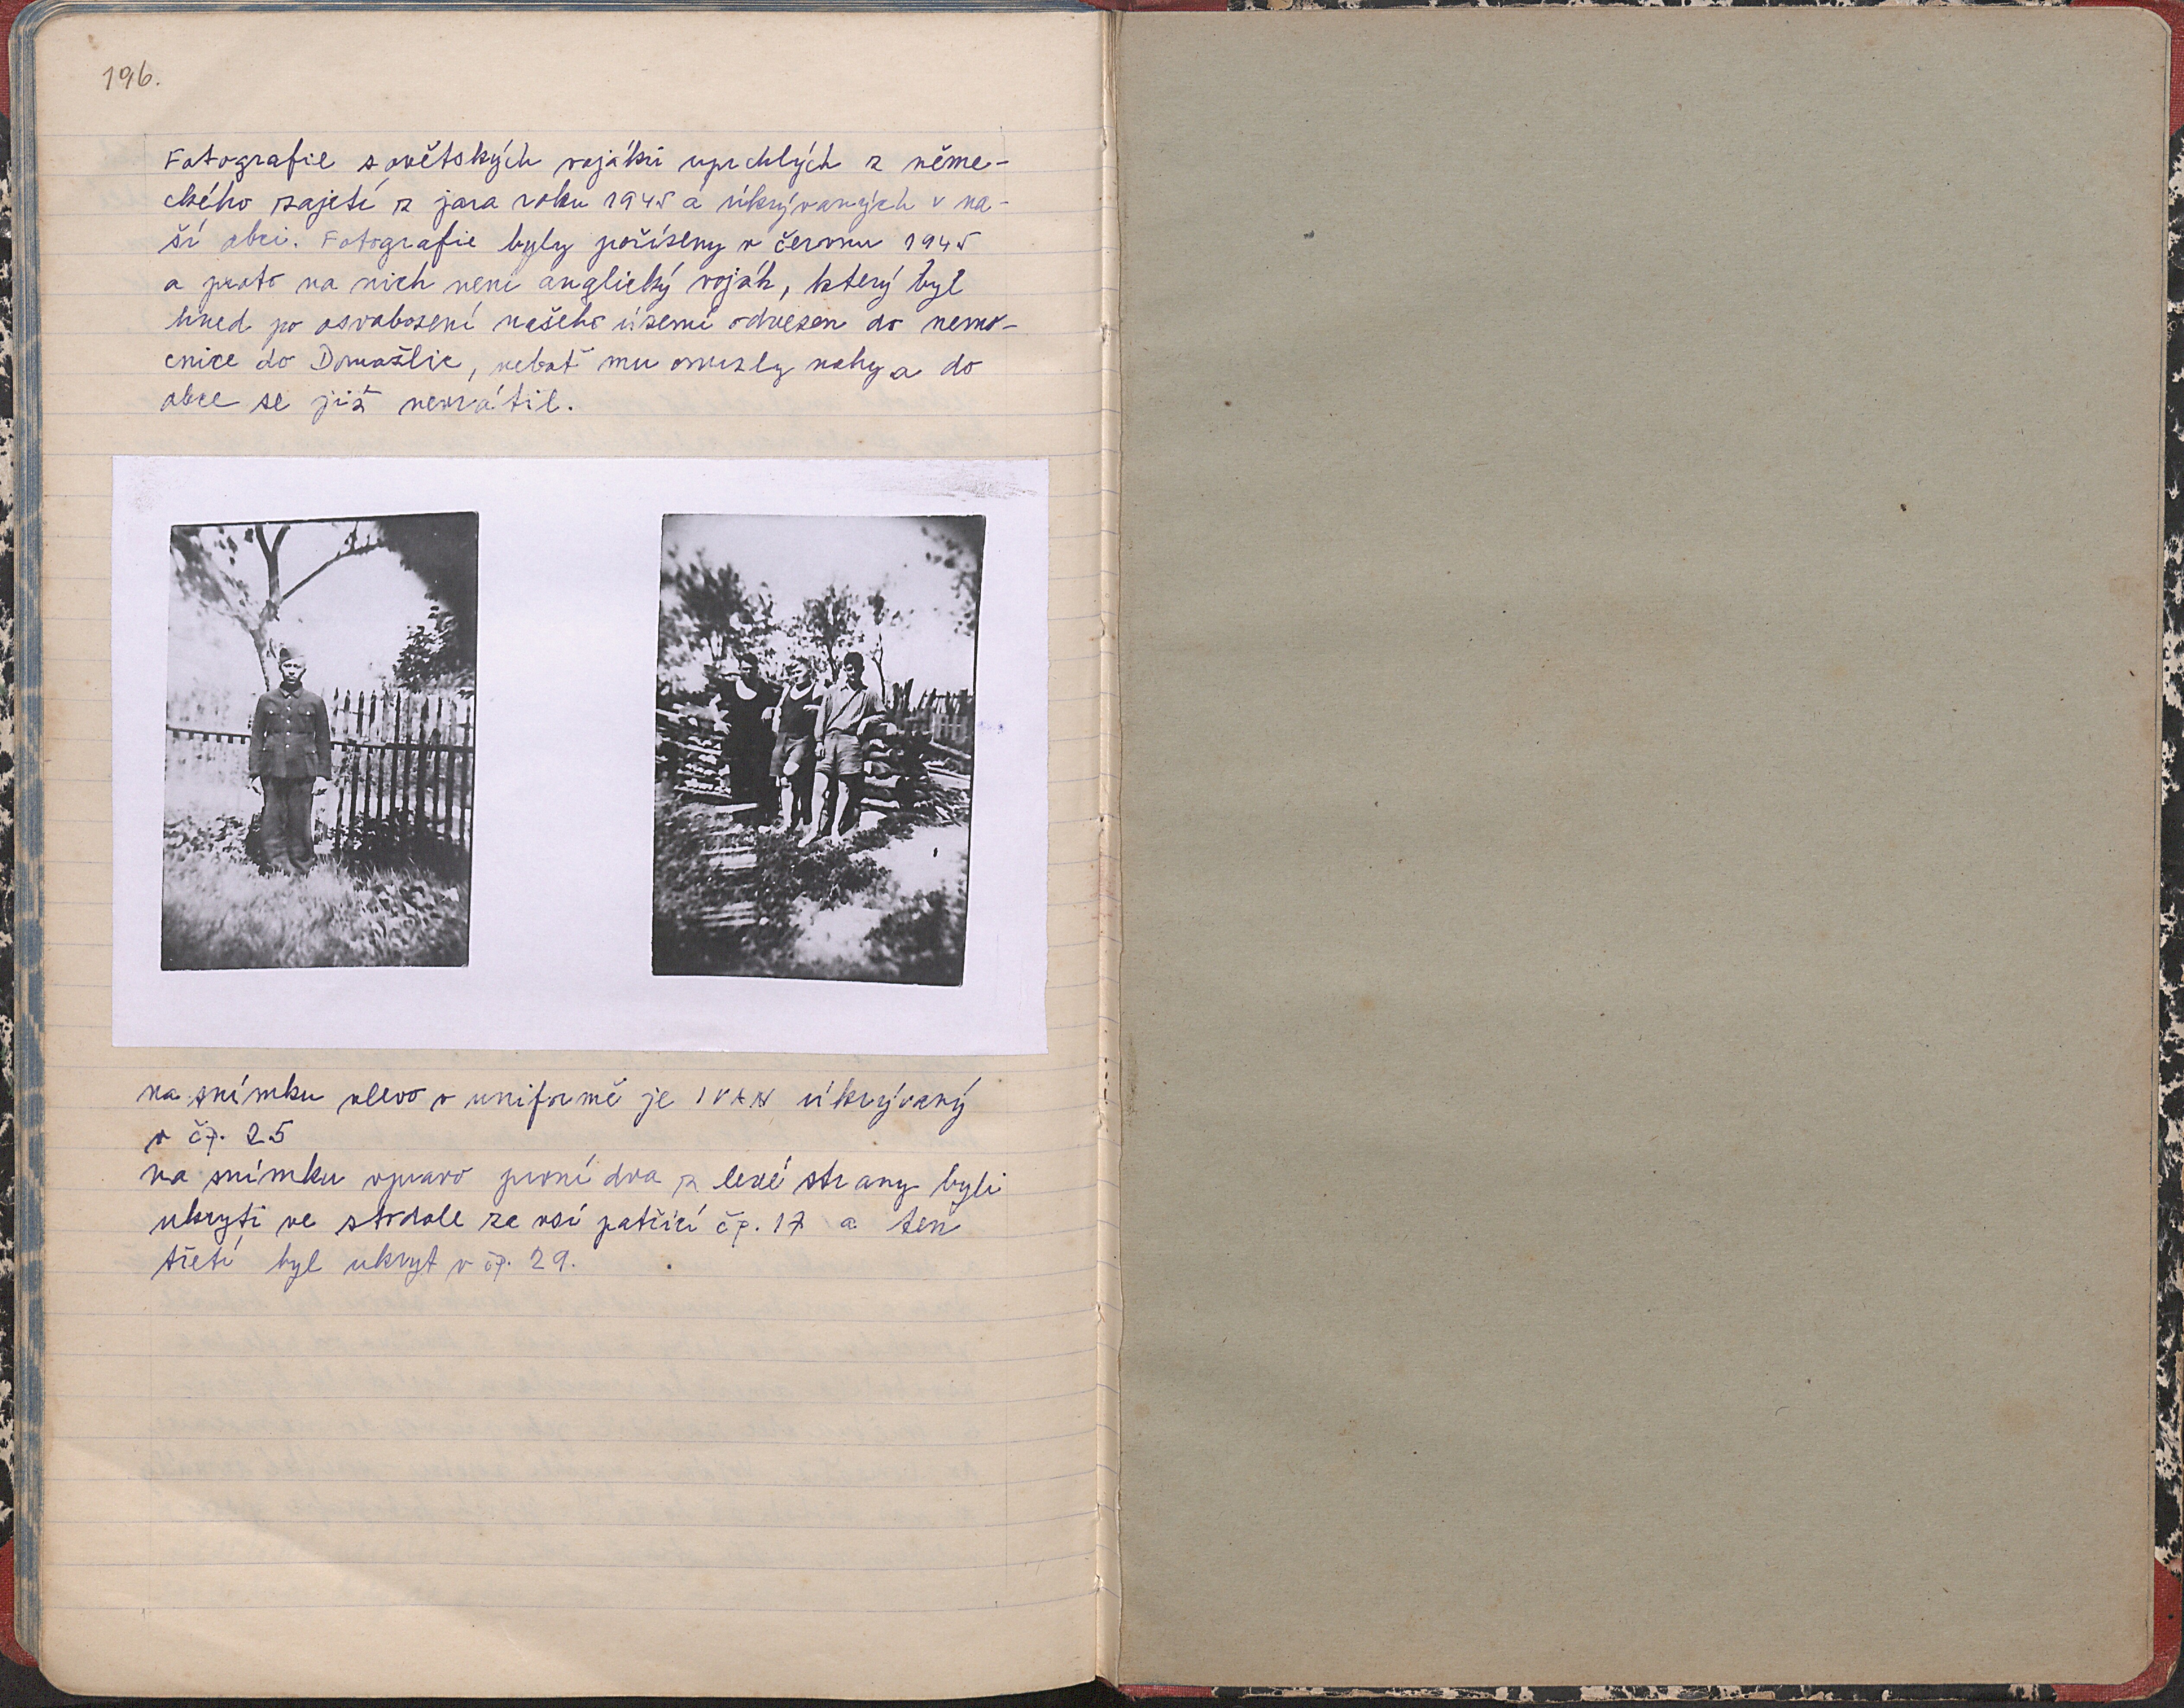 196.
Fotografie sovětských vojáků uprchlých z něme-
ckého zajetí z jara roku 1945 a úkrývaných v na-
ší obci. Fotografie byly pořízeny v červnu 1945
a proto na nich není anglický voják, který byl
hned po osvobození našeho území odvezen do nemo-
cnice do Domažlic, neboť mu omrzly nohy a do
obce se již nevrátil.
na snímku vlevo v uniformě je IVAN úkrývaný
v čp. 25
na snímku vpravo první dva z levé strany byli
ukryti ve stodole ze vsí patřící čp. 17 a ten
třetí byl ukryt v čp. 29.